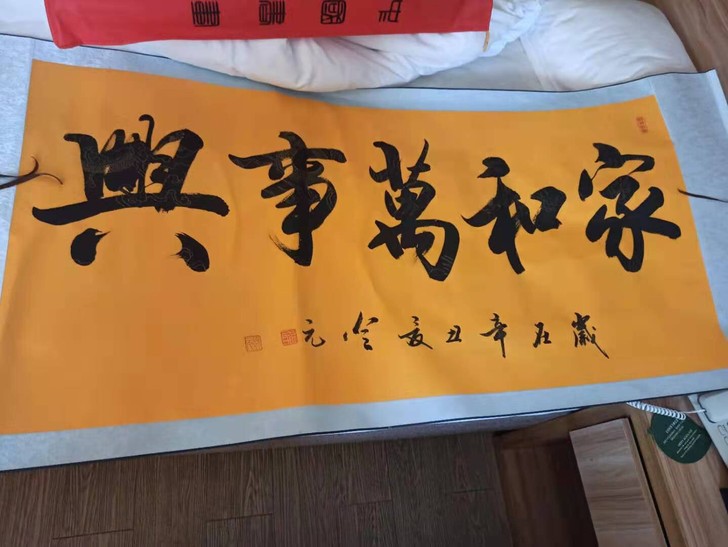 家和萬事興
歲在辛丑夏
元